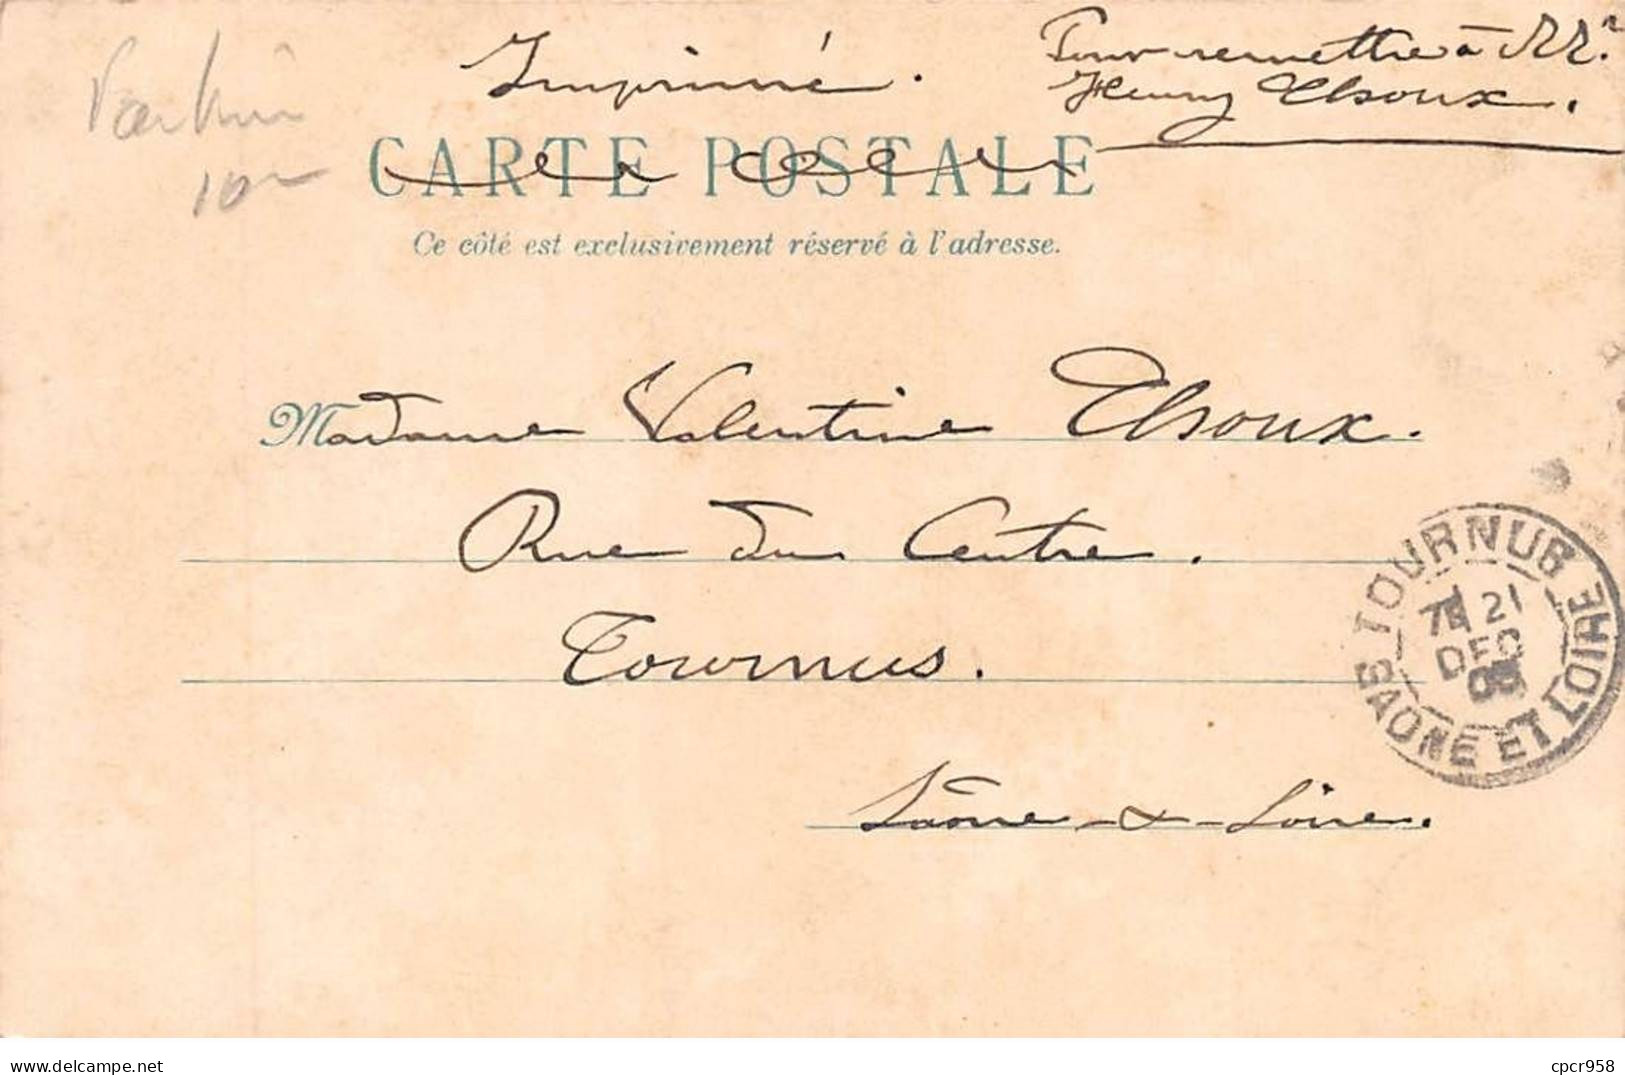 Imprimé.
Pour remettre à Mr.
Henry Thoux.
10
CARTE POSTALE
Ce côté est exclusivement réservé à l'adresse.
Madame Valentine Thoux.
Rue du Centre.
Tournus.
Saône-&-Loire.
TOURNUS
21
DEC
SAONE ET LOIRE
cpcr958